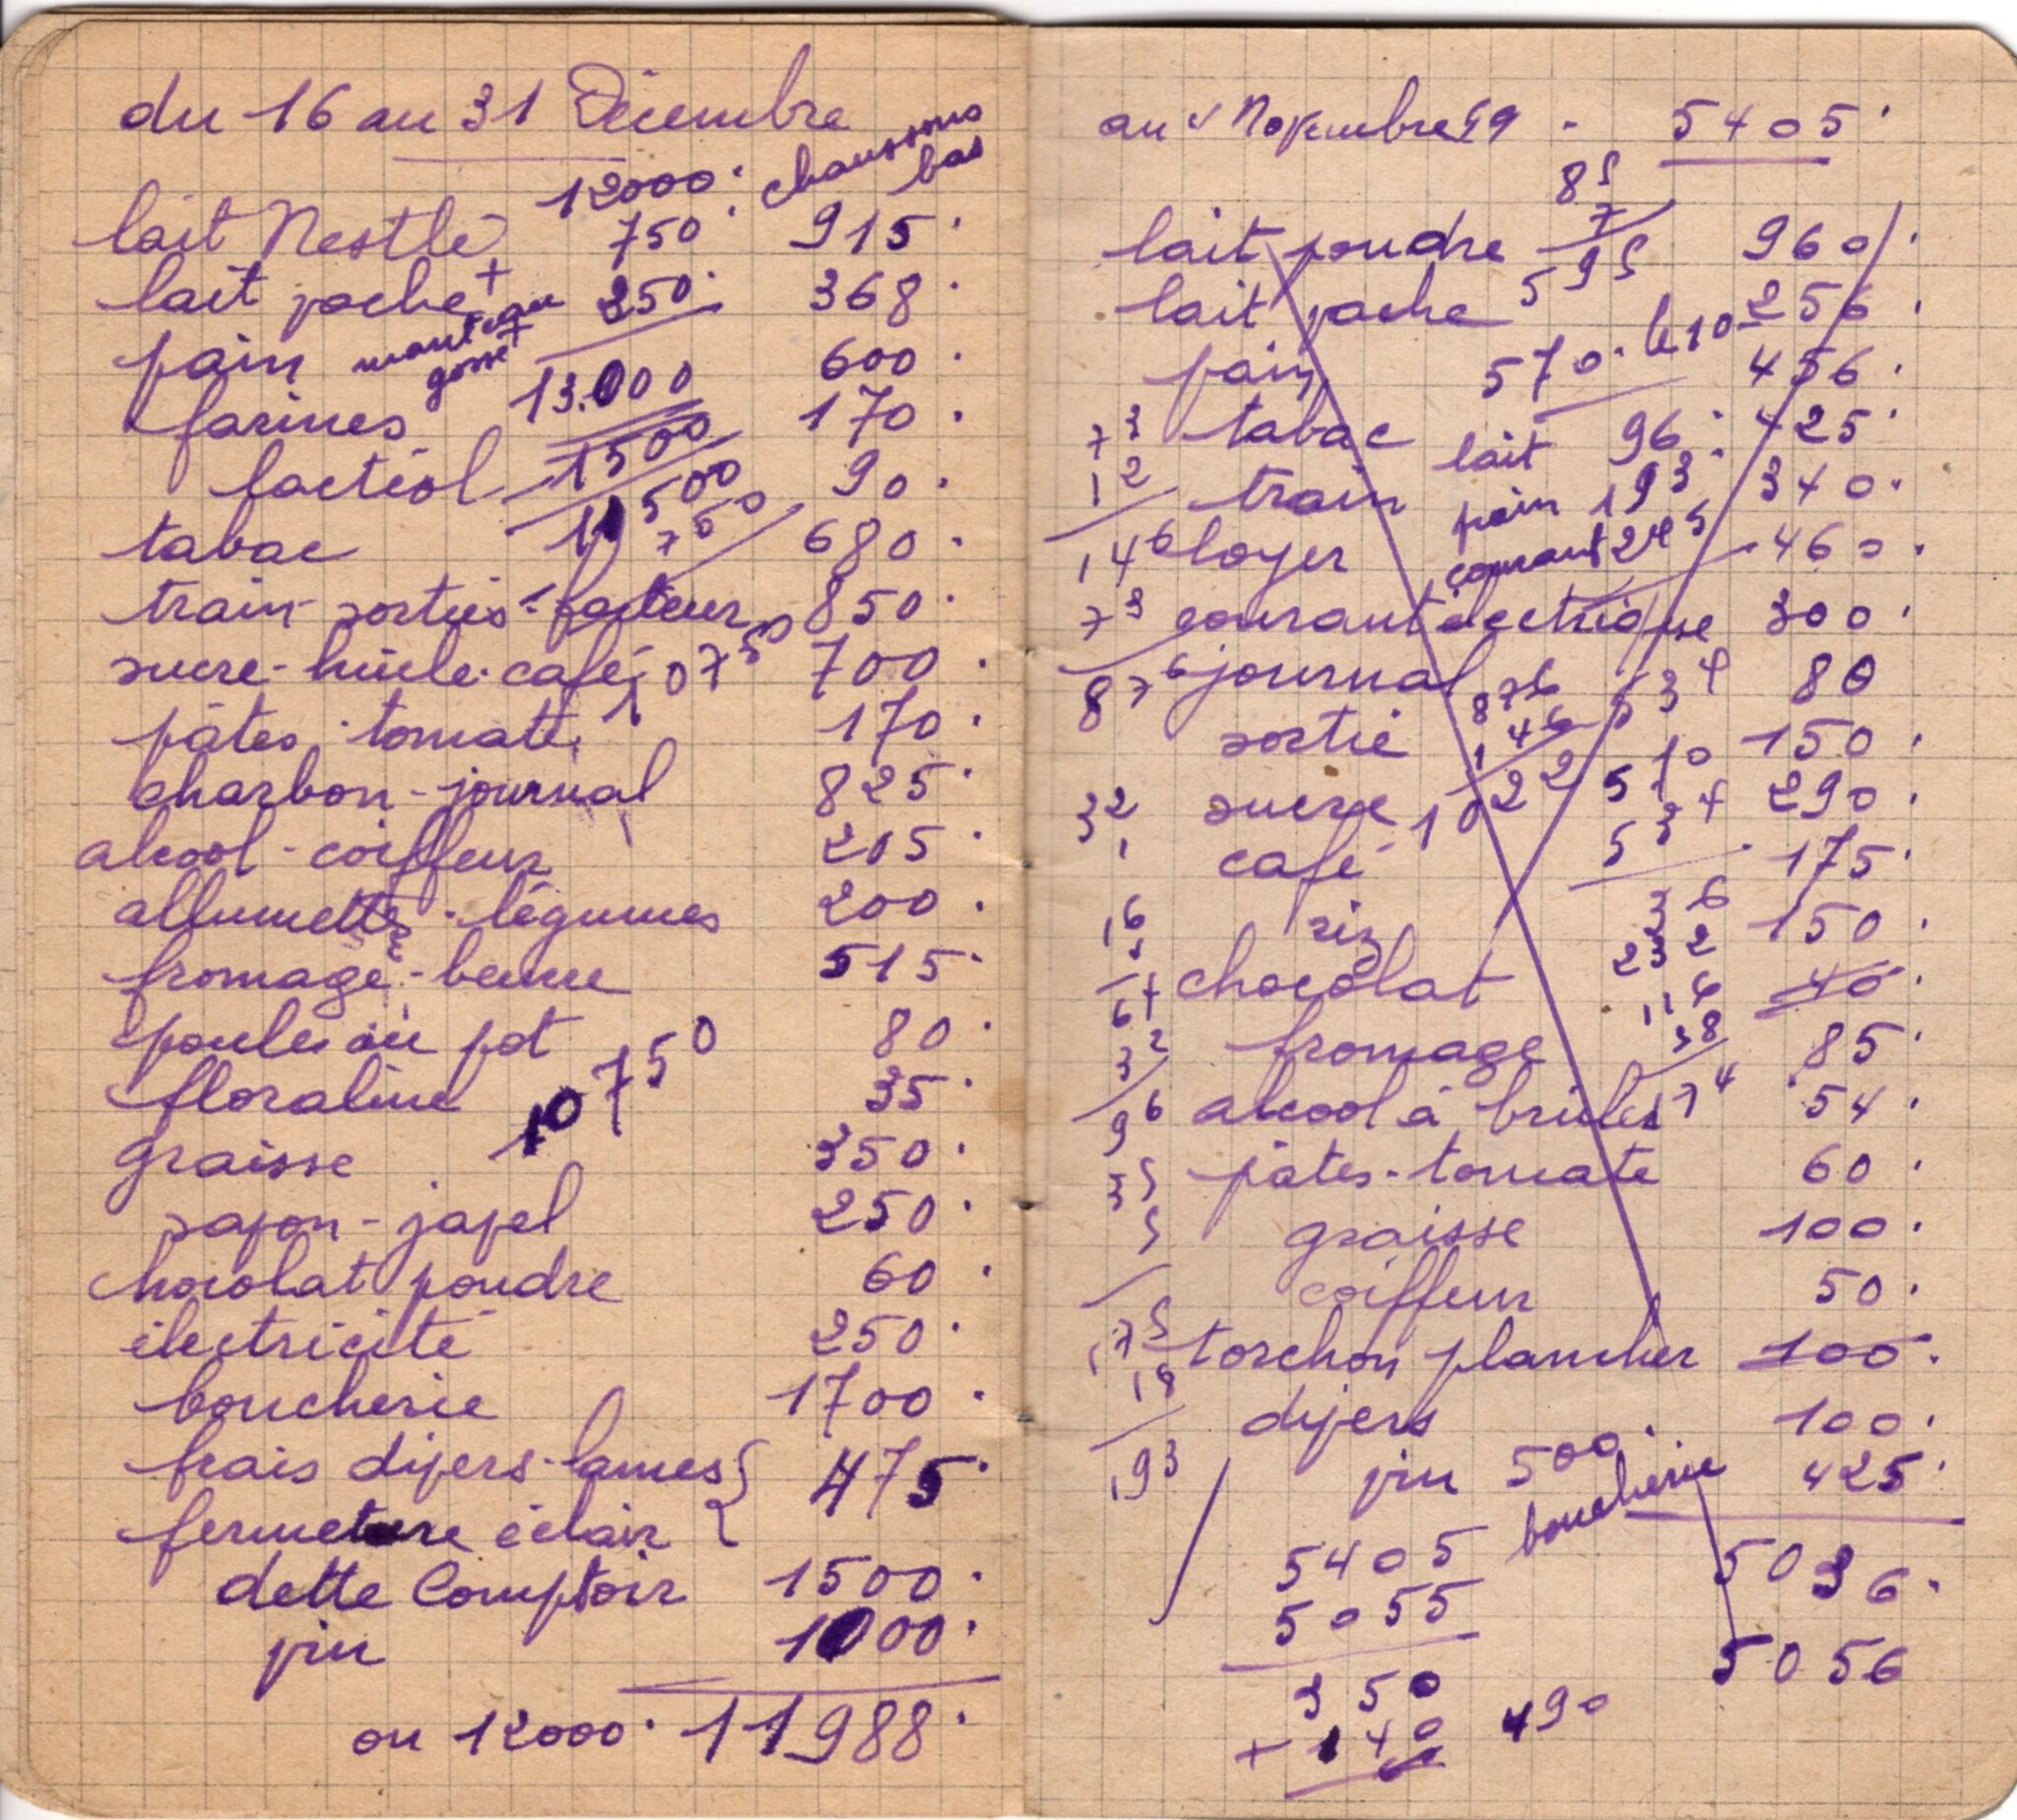 du 16 au 31 Décembre
12000. chaussons
bas
lait Nestlé 750. 915.
lait vache + 250. 368.
pain manteau gosse + 600.
13.000
farines 170.
1500
lactéol 90.
11500
750
tabac 680.
train sorties facteur 850.
sucre-huile-café 10750 700.
pâtes. tomate 170.
charbon-journal 825.
alcool-coiffeur 205.
allumettes-légumes 200.
fromage-beurre 515.
poule au pot 80.
floraline 35.
10750
graisse 350.
savon-javel 250.
chocolat poudre 60.
électricité 250.
boucherie 1700.
frais divers-lames { 475.
fermeture éclair
dette Comptoir 1500.
vin 1000.
ou 12000. 11988.
au Novembre 49 - 5405.
85
7
lait poudre 595 960.
lait vache 256.
570. le 10
pain 456.
73 tabac lait 96. 425.
12 train pain 193. 340.
146 loyer courant 245 460.
73 courant électrique 300.
876 journal 876 534 80
sortie 146 150.
32 sucre 1022 510 290.
1 café 534 175.
16 riz 36 150.
232
chocolat 116 40.
64
38
32 fromage 85.
96 alcool à brûler 174 54.
35 pâtes-tomate 60.
5 graisse 100.
coiffeur 50.
175 torchon plancher 100.
18 divers 100.
193 vin 500. boucherie 425.
5405 5036.
5055 5056
350
+ 140 490